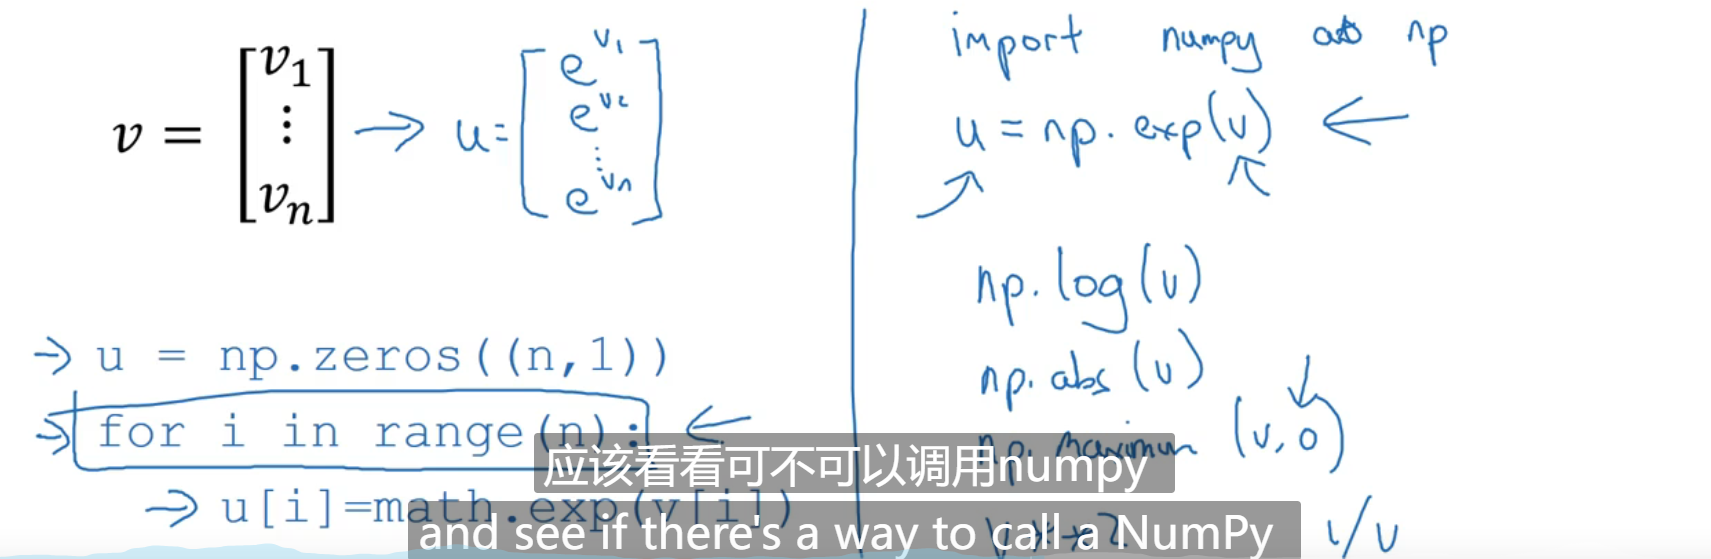 v = [v₁ ⋮ vₙ] → u = [e^v₁ e^v₂ ⋮ e^vₙ]
→ u = np.zeros((n,1))
→ for i in range(n): ←
→ u[i]=math.exp(v[i])
import numpy as np
u = np.exp(v) ←
np.log(v)
np.abs(v)
np.maximum(v,0)
v**2 1/v
应该看看可不可以调用numpy
and see if there's a way to call a NumPy